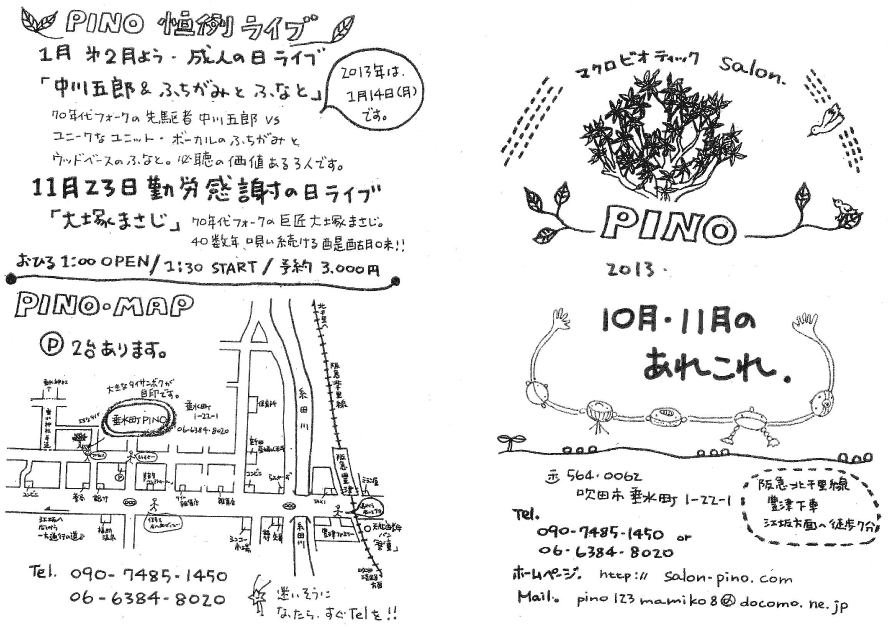 PINO 恒例ライブ
1月 第2月よう・成人の日ライブ
「中川五郎 & ふちがみとふなと」
2013年は、
1月14日(月)
です。
70年代フォークの先駆者 中川五郎 VS
ユニークなユニット・ボーカルのふちがみと
ウッドベースのふなと。必聴の価値ある3人です。
11月23日勤労感謝の日ライブ
「大塚まさじ」
70年代フォークの巨匠大塚まさじ。
40数年、唄い続ける醍醐味!!
おひる 1:00 OPEN / 1:30 START / 予約 3.000円
PINO・MAP
Ⓟ 2台あります。
大きなタイサンボクが
目印です。
垂水町PINO
垂水町
1-22-1
06-6384-8020
保育所
糸田川
北千里へ
阪急千里線
阪急豊津
コンビニ
コンビニ
糸田川
豊津
Tel. 090-7485-1450
06-6384-8020
迷いそうに
なったら、すぐTelを!!
マクロビオティック Salon.
PINO
2013.
10月・11月の
あれこれ.
〒564-0062
吹田市垂水町1-22-1
Tel.
090-7485-1450 or
06-6384-8020
阪急北千里線
豊津下車
江坂方面へ徒歩7分
ホームページ. http:// salon-pino.com
Mail. pino123mamiko8@docomo.ne.jp